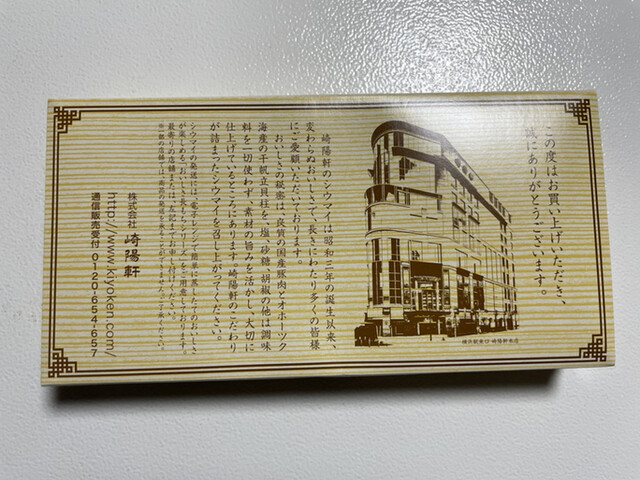 この度はお買い上げいただき、
誠にありがとうございます。
崎陽軒のシウマイは昭和三年の誕生以来、
変わらぬおいしさで、長きにわたり多くの皆様
にご愛顧いただいております。
おいしさの秘密は、良質の国産豚肉とオホーツク
海産の干帆立貝柱を、塩、砂糖、胡椒の他、調味
料を一切使わず、素材の旨みを活かし、大切に
仕上げているところにあります。崎陽軒のこだわり
が詰まったシウマイを召し上がってください。
最寄りの店舗または、左記までお申し付けください。
株式会社 崎陽軒
http://www.kiyoken.com/
通信販売受付 0120-654-657
横浜駅東口 崎陽軒本店